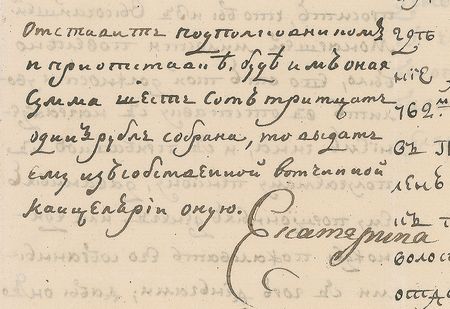 Отставить подполковникомъ
и при отставкѣ, будѣ имъ оная
сумма шестъ сотъ тритцать
одинъ рубль собрана, то выдать
ему изъ собственной вотчинной
канцеляріи оную.
Екатерина
762
волос